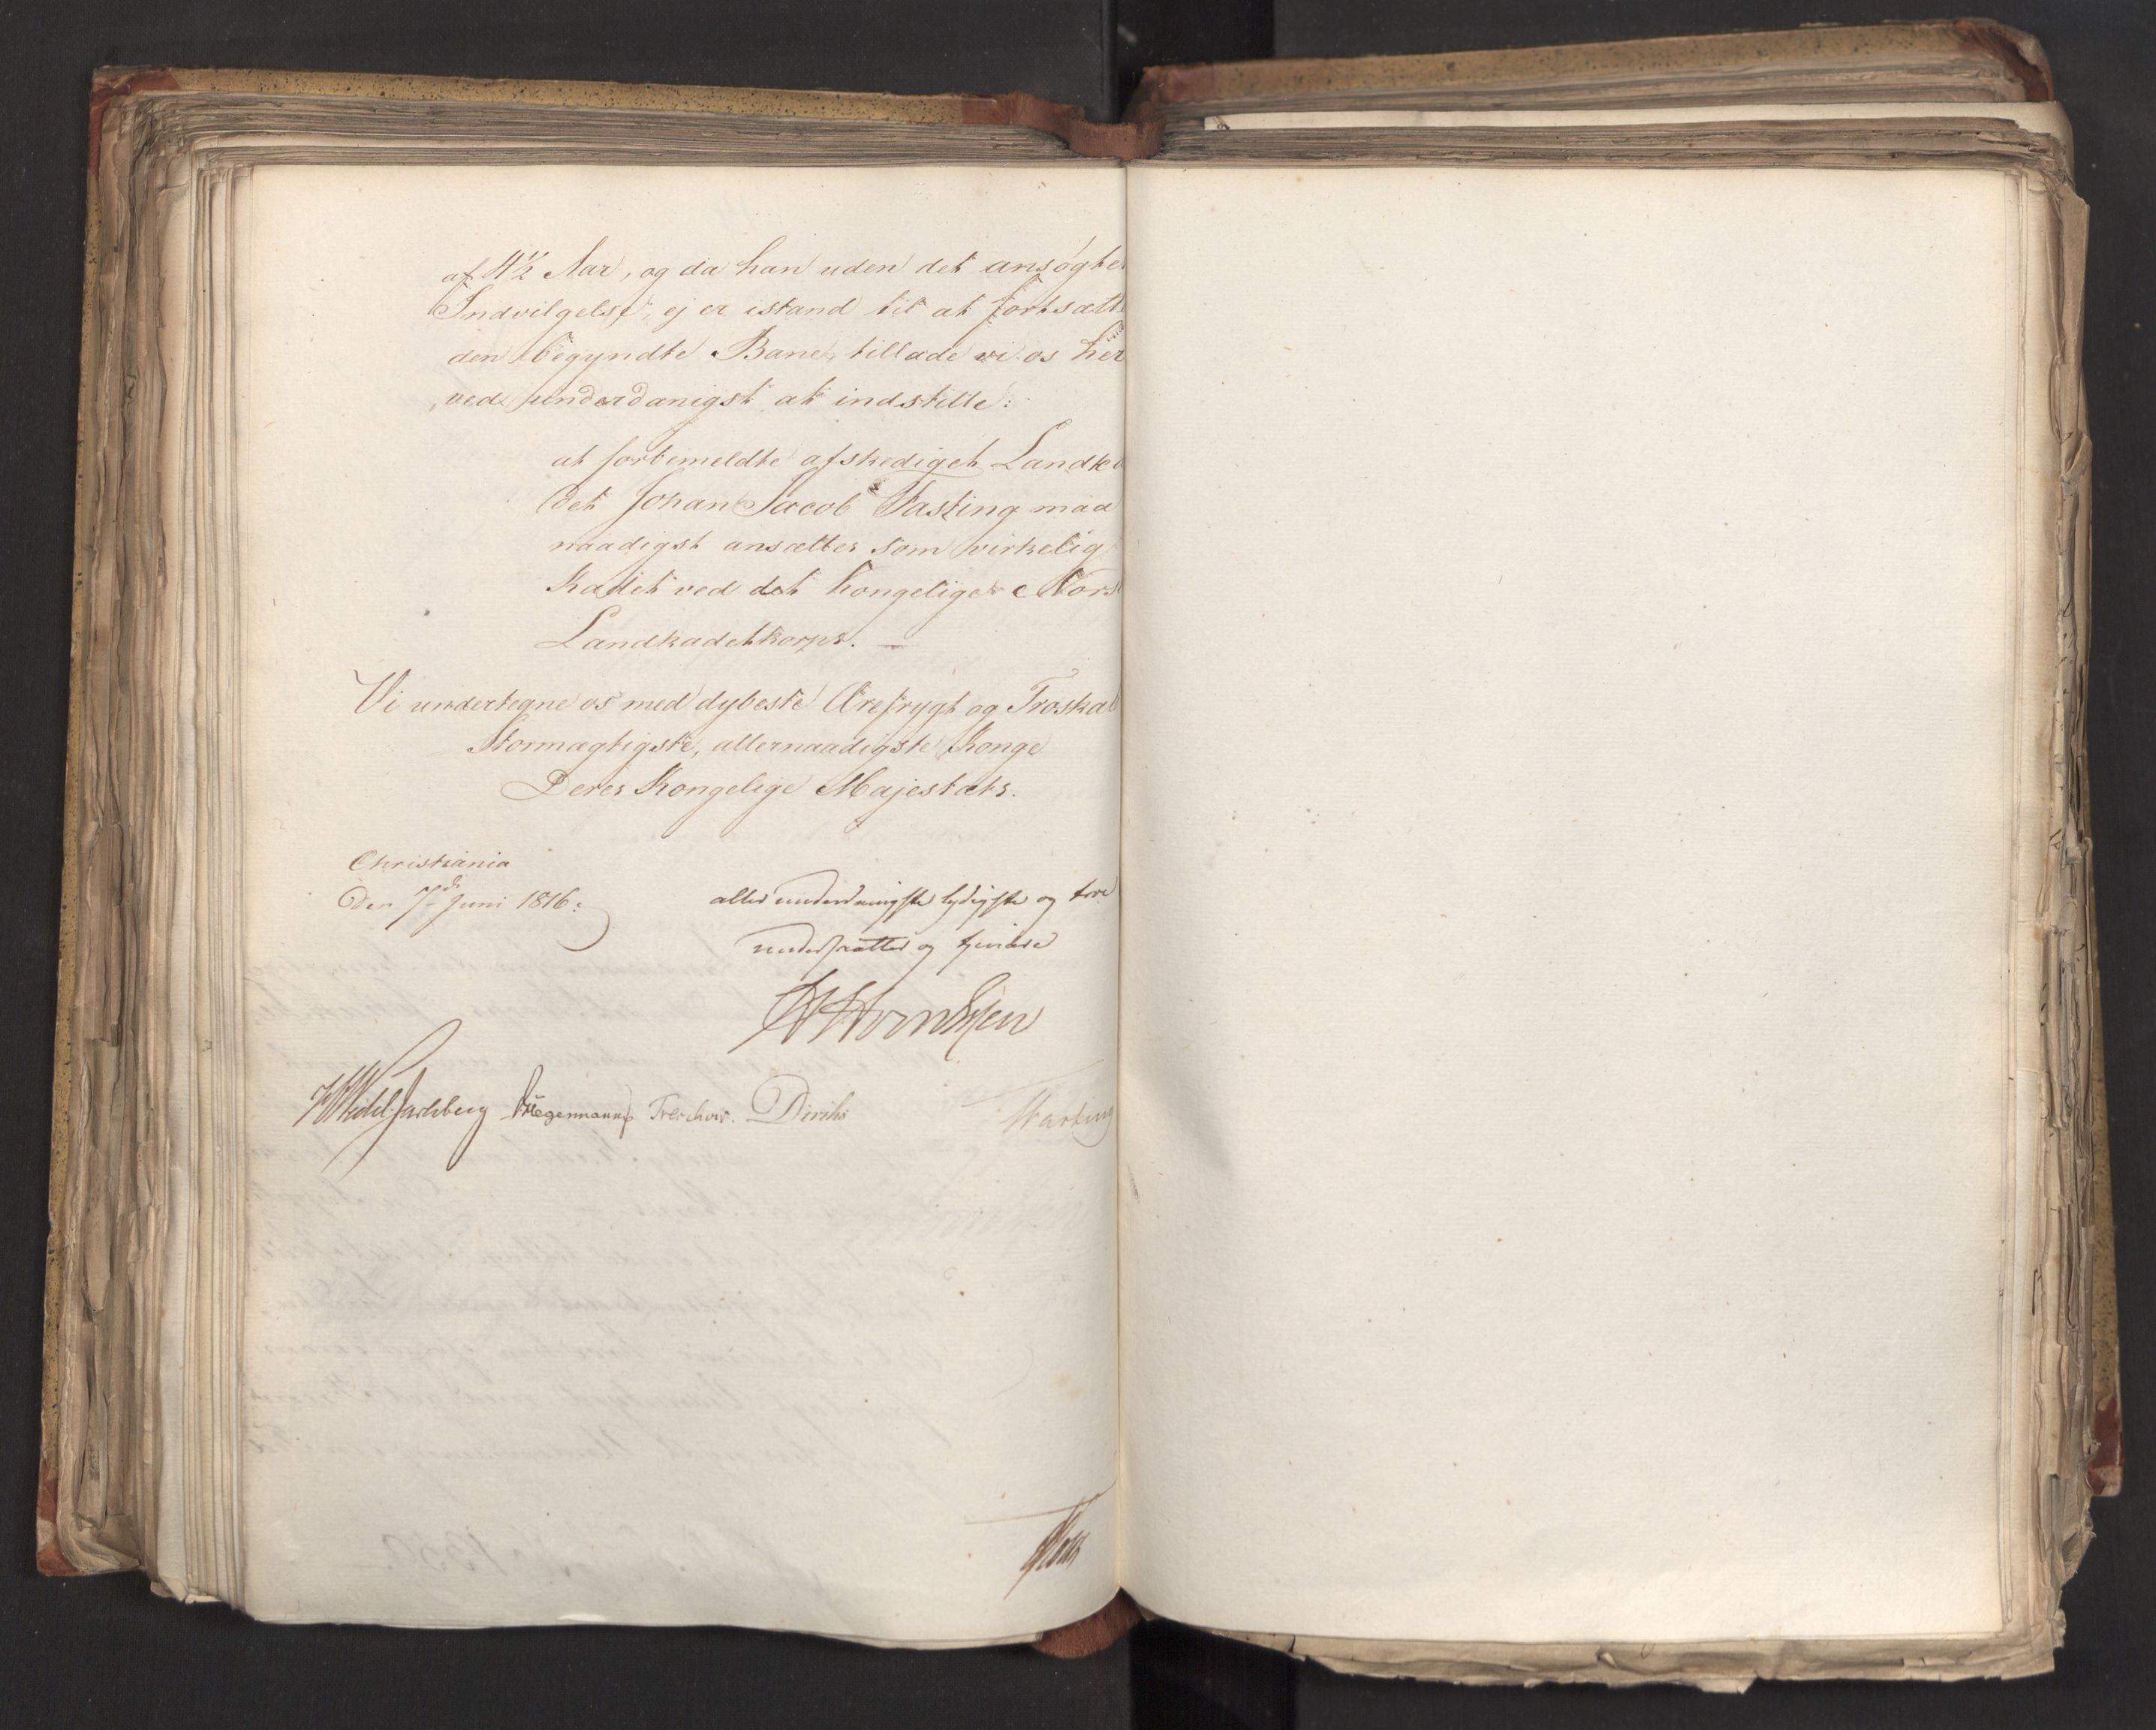 af 4½ Aar, og da han uden det ansøgte
Indvilgelse, ej er istand til at fortsætt
den begyndte Bane, tillade vi os her
ved underdanigst at indstille:
at forbemeldte afskediget Landka
det Johan Jacob Fasting maa
naadigst ansættes som virkelig
Kadet ved det kongelige Norsk
Landkadetkorps. —
Vi undertegne os med dybeste Ærefrygt og Troskab
Stormægtigste, allernaadigste Konge
Deres Kongelige Majestæts.
Christiania
Den 7de Juni 1816.
aller underdanigste lydigste og troe
undersaatter og tjenere
Wedel Jarlsberg Krieger Treschow. Diriks
Harting